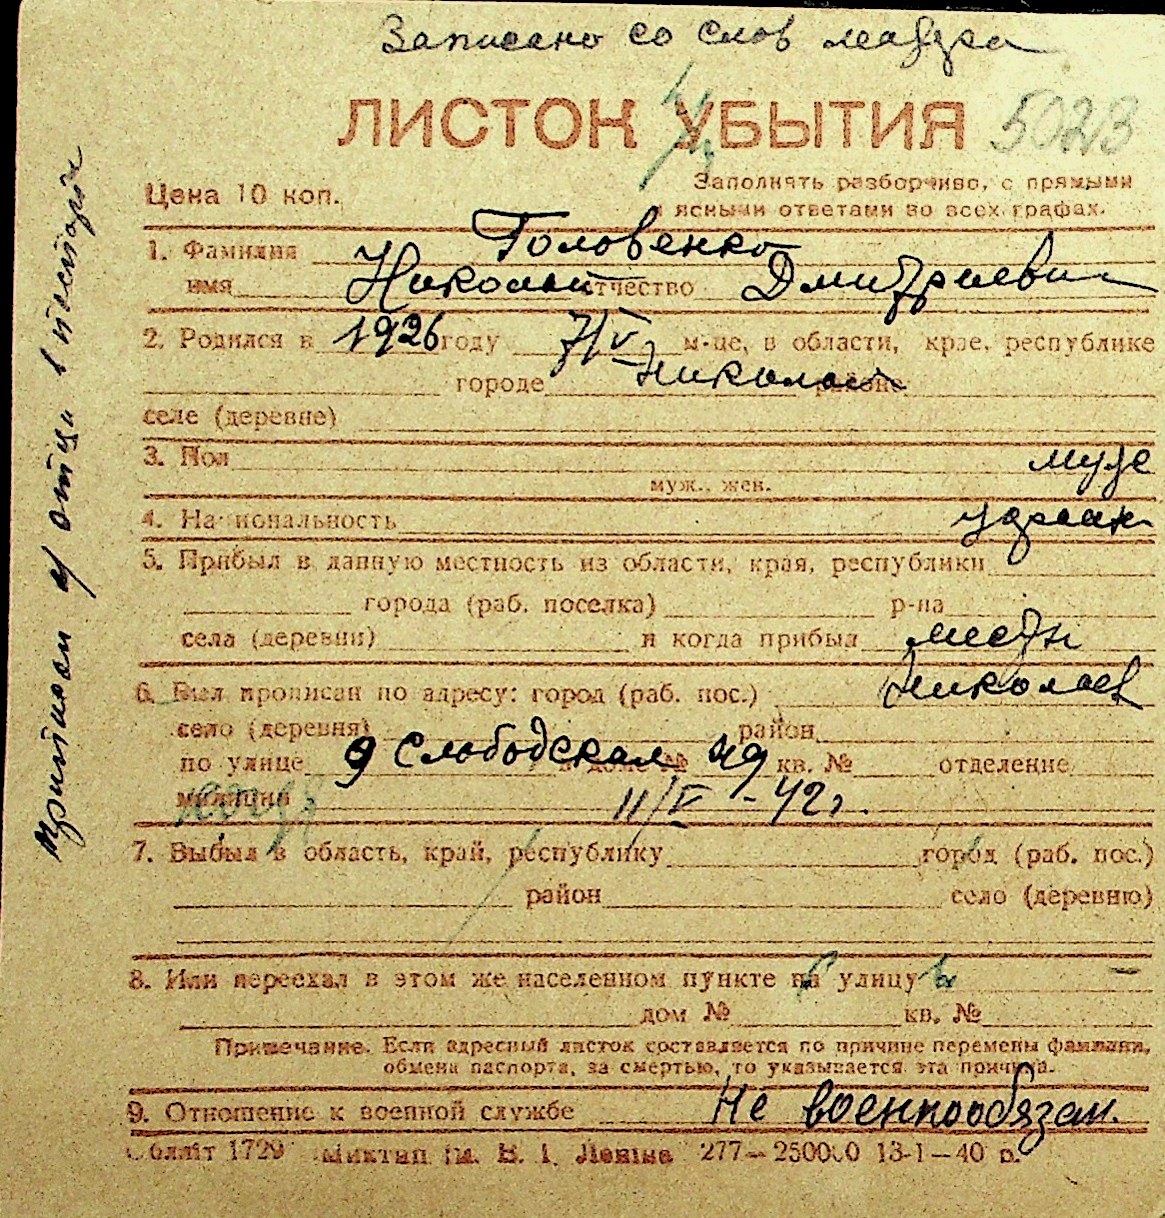 Записано со слов
ЛИСТОК УБЫТИЯ 5023
Цена 10 коп.
Заполнять разборчиво, с прямыми
и ясными ответами во всех графах.
1. Фамилия Головенко
имя Николай отчество Дмитриевич
2. Родился в 1926 году 7/V м-це, в области, крае, республике
городе Николаев районе
селе (деревне)
3. Пол муж
муж., жен.
4. Национальность
5. Прибыл в данную местность из области, края, республики
города (раб. поселка) р-на
села (деревни) и когда прибыл местн
6. Был прописан по адресу: город (раб. пос.) Николаев
село (деревня) район
по улице 9 Слободская в доме № 49 кв. № отделение
милиции 11/V - 42 г.
7. Выбыл в область, край, республику город (раб. пос.)
район село (деревню)
8. Или переехал в этом же населенном пункте на улицу —
дом № кв. №
Примечание. Если адресный листок составляется по причине перемены фамилии,
обмена паспорта, за смертью, то указывается эта причина.
9. Отношение к военной службе Не военнообязан.
Облліт 1729 Миктип ім. В. І. Леніна 277—250000 13-I—40 р.